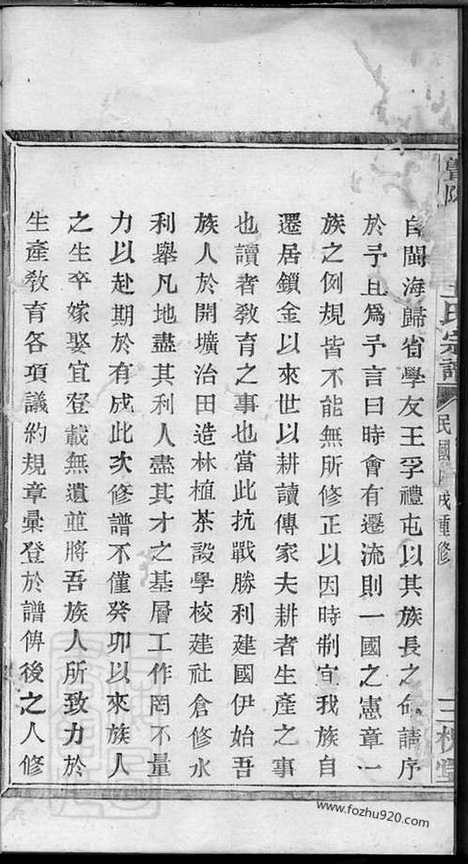 自閩海歸省學友王孚禮屯以其族長之命請序
於予且爲予言曰時會有遷流則一國之憲章一
族之例規皆不能無所修正以因時制宜我族自
遷居鎖金以來世以耕讀傳家夫耕者生產之事
也讀者敎育之事也當此抗戰勝利建國伊始吾
族人於開壙治田造林植茶設學校建社倉修水
利舉凡地盡其利人盡其才之基層工作罔不量
力以赴期於有成此次修譜不僅癸卯以來族人
之生卒嫁娶宜登載無遺並將吾族人所致力於
生產敎育各項議約規章彙登於譜俾後之人修
暨陽
王氏宗譜
民國丙戌重修
三槐堂
www.fozhu920.com